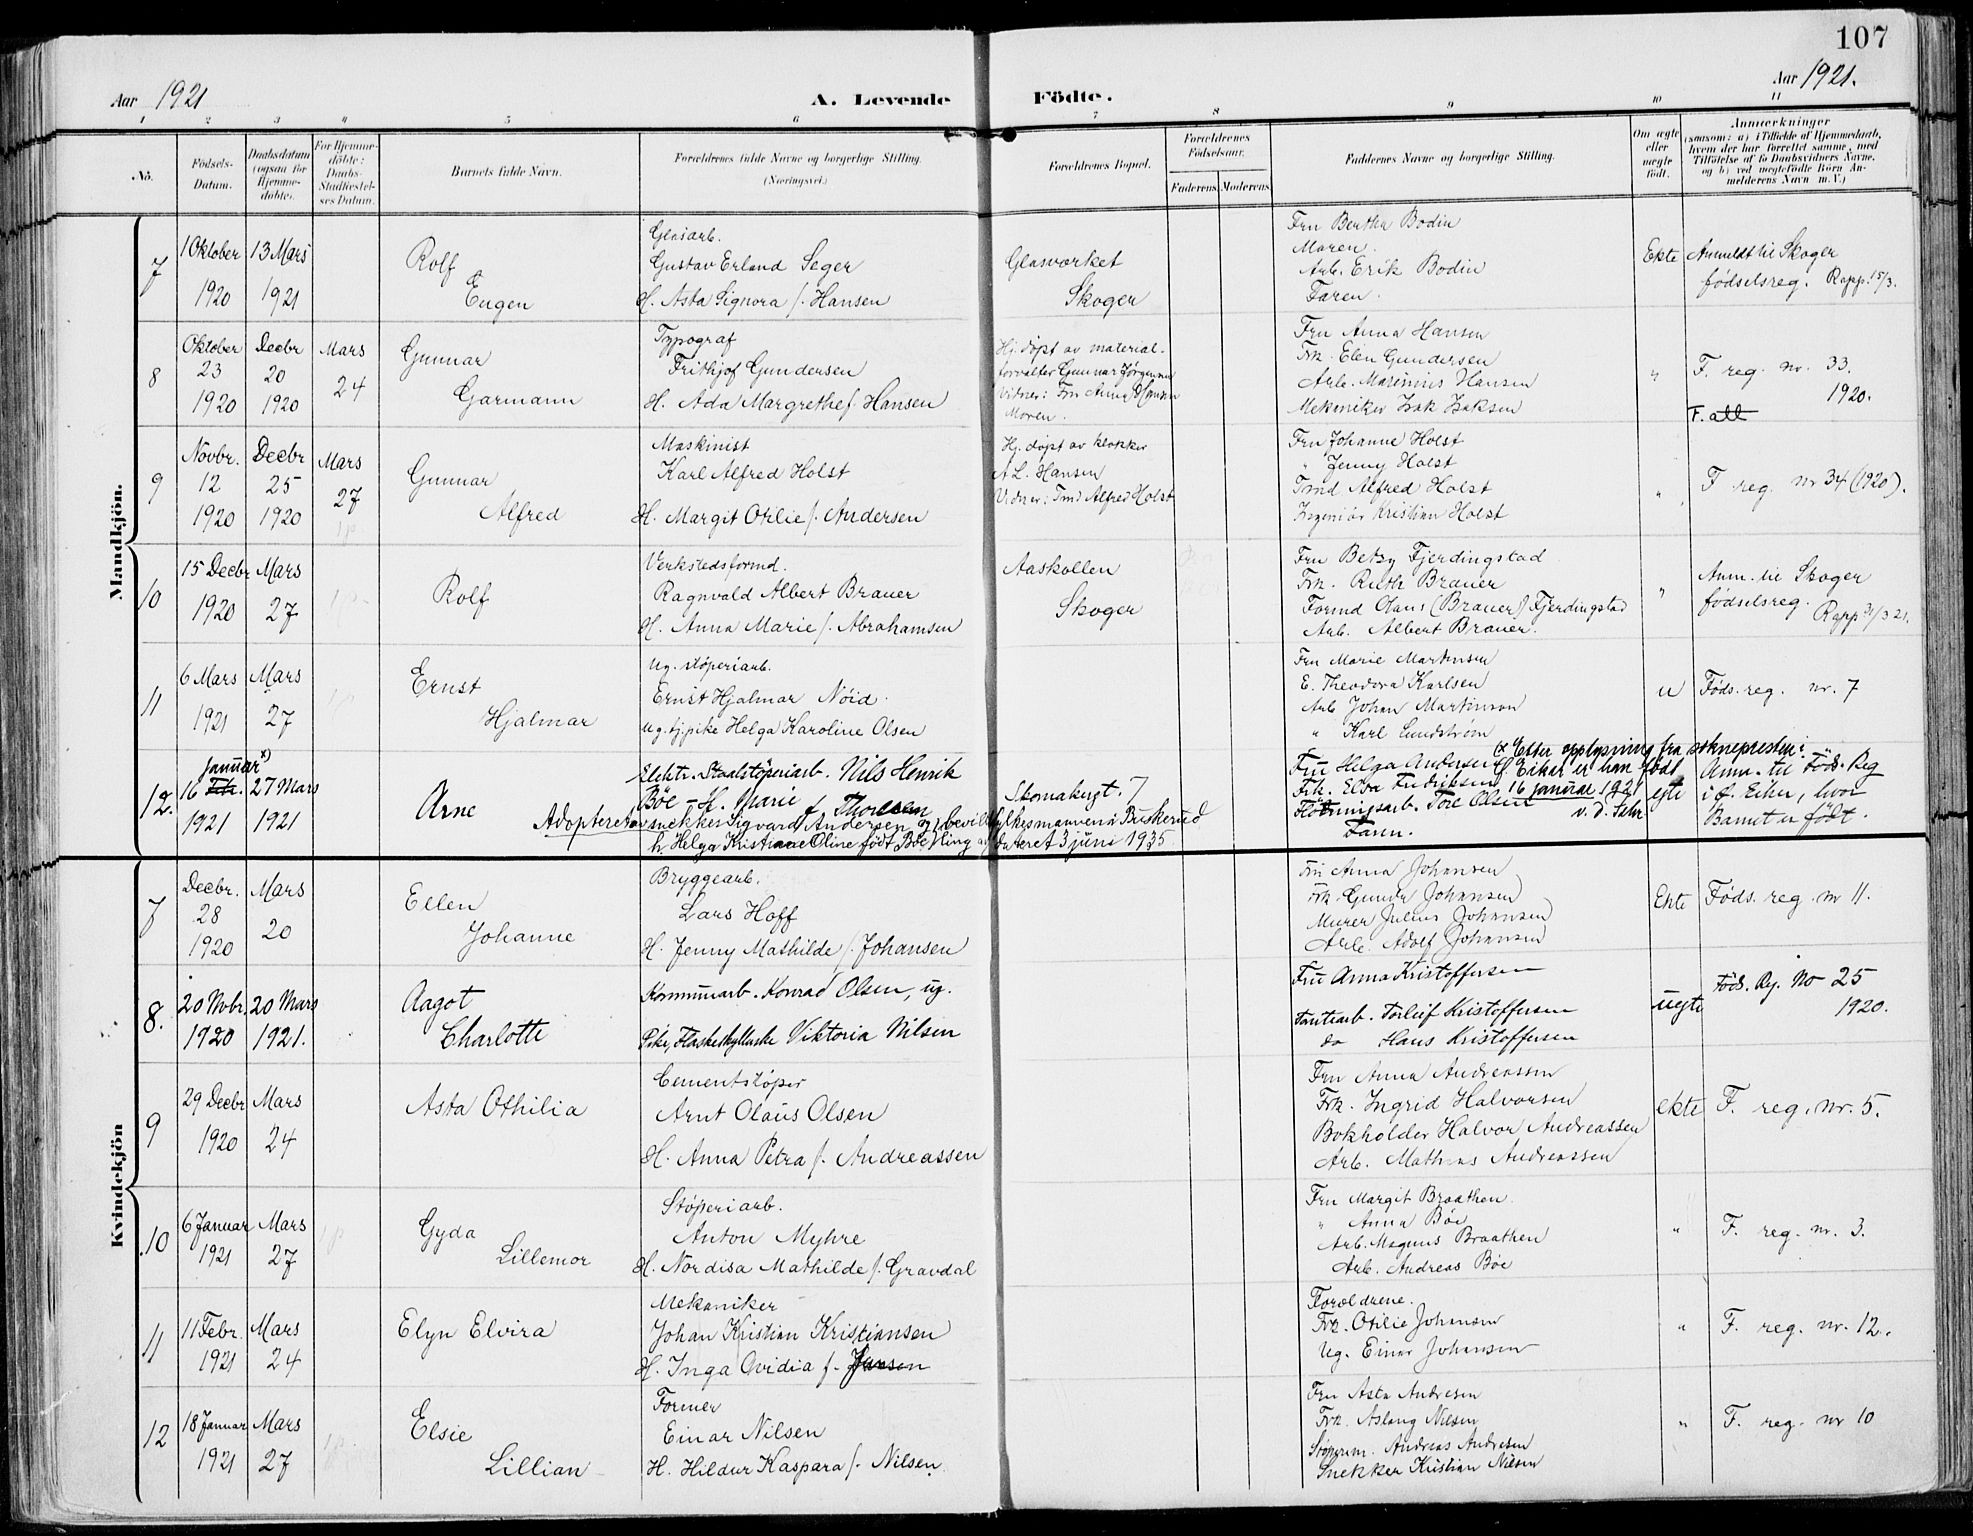 107
Aar 1921
A. Levende
Födte.
Aar 1921.
1 2 3 4 5 6 7 8 9 10 11
No.
Födsels-Datum.
Daabsdatum (ogsaa for Hjemme-døbte).
For Hjemme-döbte: Daabs-Stadfæstel-ses Datum.
Barnets fulde Navn.
Forældrenes fulde Navne og borgerlige Stilling. (Næringsvei.)
Forældrenes Bopæl.
Forældrenes Födselsaar.
Faderens Moderens
Faddernes Navne og borgerlige Stilling.
Om ægte eller uægte født.
Anmærkninger
(saasom: a) i Tilfælde af Hjemmedaab, hvem der har forrettet samme, med Tilföielse af to Daabsvidners Navne, og b) ved uegtefödte Börn Anmelderens Navn m. V.)
Mandkjön.
7
1 Oktober 1920
13 Mars 1921
Rolf Eugen
Glasarb.
Gustav Erland Seger
H. Asta Signora f. Hansen
Glasværket
Skoger
Fru Bertha Bodin
Moren.
Arb. Erik Bodin
Faren.
Ekte
Anmeldt til Skoger
fødselsreg. Rapp. 15/3.
8
Oktober 23 1920
Decbr 20 1920
Mars 24
Gunnar Garmann
Typograf
Frithjof Gundersen
H. Ada Margrethe f. Hansen
Hj. døpt av material-
forvalter Gunnar Jørgensen
Vidner: Fru Anna Hansen
Moren.
Fru Anna Hansen
Frk. Elen Gundersen
Arb. Marinius Hansen
Mekaniker Isak Isaksen
"
F. reg. nr. 33.
1920.
F. att
9
Novbr. 12 1920
Decbr 25 1920
Mars 27
Gunnar Alfred
Maskinist
Karl Alfred Holst
H. Margit Otilie f. Andersen
Hj. døpt av klokker
A L. Hansen
Vidner: Tmd Alfred Holst
Fru Johanne Holst
" Jenny Holst
Tmd Alfred Holst
Ingeniør Kristian Holst
"
F reg. nr 34 (1920).
10
15 Decbr 1920
Mars 27
Rolf
Verkstedsformd.
Ragnvald Albert Brauer
H. Anna Marie f. Abrahamsen
Aaskollen
Skoger
Fru Betzy Fjerdingstad
Frk. Ruth Brauer
Formd Olaus (Brauer) Fjerdingstad
Arb. Albert Brauer.
"
Anm. til Skoger
fødselsreg.
Rapp 31/3 21.
11
6 Mars 1921
Mars 27
Ernst Hjalmar
Ug. støperiarb.
Ernst Hjalmar Nöid.
Ug. tj.pike Helga Karoline Olsen
Fru Marie Martinsen
E. Theodora Karlsen
Arb Johan Martinson
" Karl Lundstrøm
u
Føds. reg. nr. 7
12.
januar x)
16 Feb. 1921
27 Mars 1921
Arne
Elektr. Staalstöperiarb. Nils Henrik
Böe - H. Marie f. Thoresen
Adopteret av snekker Sigvard Andersen og
h. Helga Kristiane Oline født Böe
Skomakergt. 7
fylkesmannen i Buskerud
datert 3 juni 1935
Fru Helga Andersen
Frk. Elva Fredriksen
Flötningsarb. Tore Olsen
Faren.
x Efter opplysning fra soknepresten i
Ø. Eiker er han født
16 januar 1921
egte
Anm. til Föds. Reg
i Ø. Eiker, hvor
Barnet er født.
Kvindekjön
7
Decbr. 28 1920
Mars 20
Ellen Johanne
Bryggearb.
Lars Hoff
H. Jenny Mathilde f. Johansen
Fru Anna Johansen
Frk. Gunda Johansen
Murer Julius Johansen
Arb. Adolf Johansen
Ekte
Føds. reg. nr 11.
8.
20 Nobr. 1920
20 Mars 1921.
Aagot Charlotte
Kommunarb. Konrad Olsen, ug.
Pike, Flaskeskyllerske Viktoria Nilsen
Fru Anna Kristoffersen
Tomtearb. Torleif Kristoffersen
do Hans Kristoffersen
uegte
Föds. Rg. No 25
1920.
9
29 Decbr 1920
Mars 24
Asta Othilia
Cementstøper
Arnt Olaus Olsen
H. Anna Petra f. Andreassen
Fru Anna Andreassen
Frk. Ingrid Halvorsen
Bokholder Halvor Andreassen
Arb. Mathias Andreassen
ekte
F. reg. nr. 5.
10
6 Januar 1921
Mars 27
Gyda Lillemor
Støperiarb.
Anton Myhre
H. Nordisa Mathilde f. Gravdal
Fru Margit Braathen
" Anna Bøe
Arb. Magnus Braathen
Arb. Andreas Bøe
"
F. reg. nr. 3.
11
11 Febr. 1921
Mars 24
Elyn Elvira
Mekaniker
Johan Kristian Kristiansen
H. Inga Ovidia f. Jansen
Forældrene.
Frk. Otilie Johansen
Ug. Einar Johansen
"
F. reg. nr. 12.
12
18 Januar 1921
Mars 27
Elsie Lillian
Former
Einar Nilsen
H. Hildur Kaspara f. Nilsen.
Fru Asta Andresen
Frk. Aslaug Nilsen
Støperim. Andreas Andresen
Snekker Kristian Nilsen
"
F. reg. nr 10